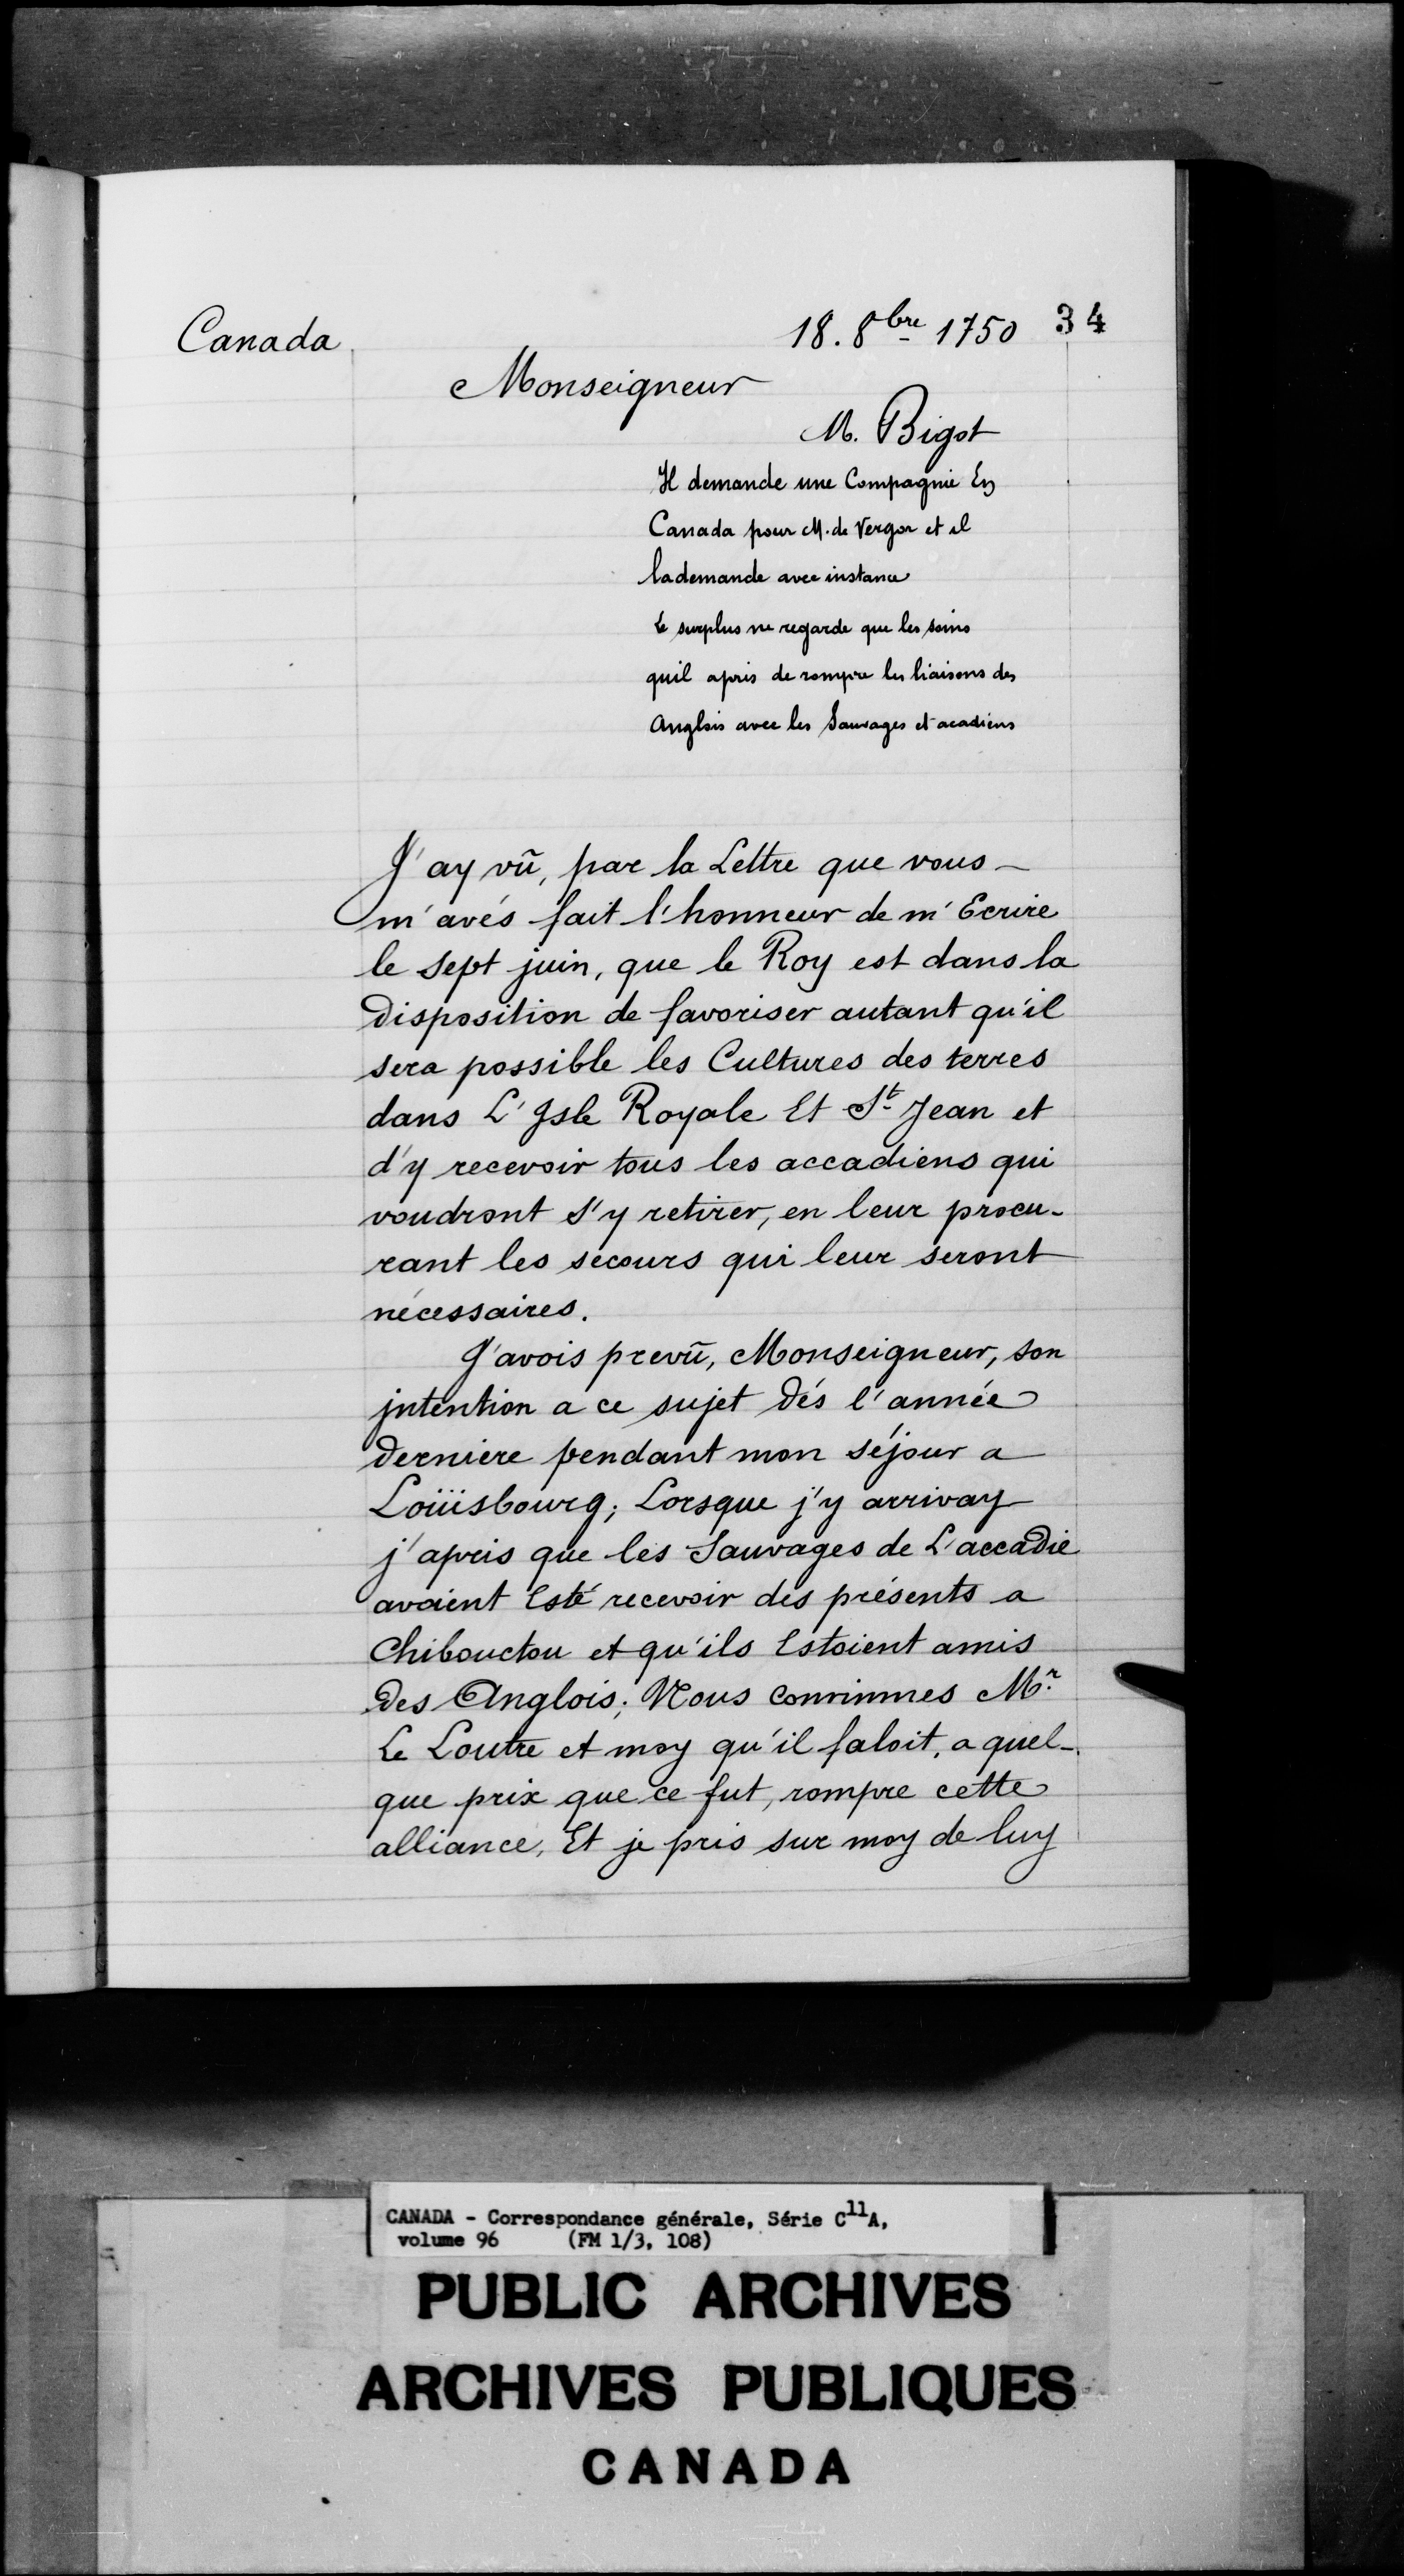 Canada
18. 8bre 1750 34
Monseigneur
M. Bigot
Il demande une Compagnie En
Canada pour M. de Vergor et il
la demande avec instance
Le surplus ne regarde que les soins
quil apris de rompre les liaisons des
Anglois avec les Sauvages et acadiens
J'ay vû, par la Lettre que vous
m'avés fait l'honneur de m'Ecrire
le sept juin, que le Roy est dans la
disposition de favoriser autant qu'il
sera possible les Cultures des terres
dans L'Isle Royale Et St Jean et
d'y recevoir tous les accadiens qui
voudront s'y retirer, en leur procu-
rant les secours qui leur seront
nécessaires.
J'avois prevû, Monseigneur, son
jntention a ce sujet dés l'année
derniere pendant mon séjour a
Loüisbourg; Lorsque j'y arrivay
j'apris que les Sauvages de L'accadie
avaient Esté recevoir des présents a
Chibouctou et qu'ils Estoient amis
des Anglois; Nous convinmes Mr
Le Loutre et moy qu'il faloit, a quel-
que prix que ce fut, rompre cette
alliance, Et je pris sur moy de luy
CANADA - Correspondance générale, Série C11A,
volume 96 (FM 1/3, 108)
PUBLIC ARCHIVES
ARCHIVES PUBLIQUES
CANADA